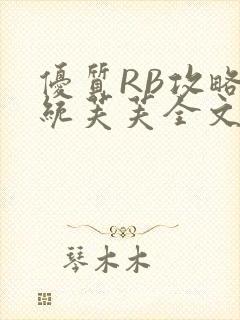 優質RB攻略
統芙芙全文
琴木木